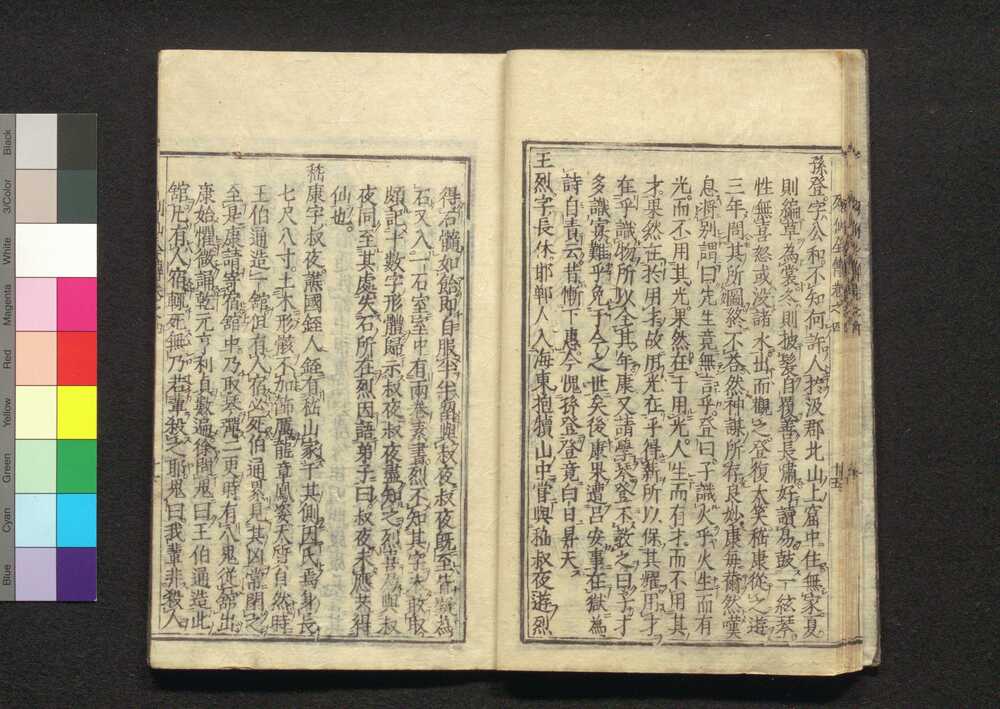 孫登字公和不知何許人於汲郡北山上窟中住無家夏
則編草為裳冬則披髮自覆善長嘯好讀易鼓一絃琴
性無喜怒或没諸水出而觀之登復大笑嵇康從之遊
三年問其所圖終不荅然神謀所存良妙康每薾然嘆
息將别謂曰先生竟無言乎登曰子識火乎火生而有
光而不用其光果然在于用光人生而有才而不用其
才果然在於用才故用光在乎得薪所以保其耀用才
在乎識物所以全其年康又請學琴登不教之曰子才
多識寡難乎免于今之世矣後康果遭呂安事在獄為
詩自責云昔慚下惠今愧孫登登竟白日昇天
王烈字長休邯鄲人入海東抱犢山中嘗與嵇叔夜遊烈
得石髓如飴即自服半半留與叔夜叔夜既至皆凝為
石又入一石室室中有兩卷素書烈不知其字不敢取
頗記十數字形體歸示叔夜叔夜盡知之烈喜乃與叔
夜同至其處失石所在烈因語弟子曰叔夜未應來得
仙也
嵇康字叔夜譙國銍人銍有嵇山家于其側因氏焉身長
七尺八寸土木形骸不加飾厲龍章鳳姿天質自然時
王伯通造一館但有人宿必死伯通累見其凶常閉之
至是康請寄宿館中乃取琴彈二更時有八鬼從館出
康始懼微誦乾元亨利貞數遍徐問鬼曰王伯通造此
館凡有人宿輒死無乃若輩殺之耶鬼曰我輩非殺人
Black
3/Color
White
Magenta
Red
Yellow
Green
Cyan
Blue